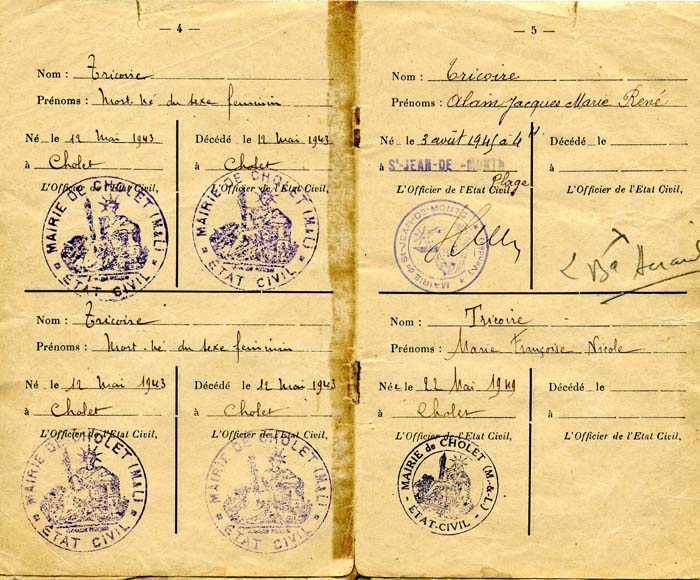 — 4 —
Nom : Tricoire
Prénoms : Mort-né du sexe feminin
Né le 12 Mai 1943 Décédé le 12 Mai 1943
à Cholet à Cholet
L'Officier de l'Etat Civil, L'Officier de l'Etat Civil,
MAIRIE DE CHOLET (M&L) ETAT CIVIL
MAIRIE DE CHOLET (M&L) ETAT CIVIL
Nom : Tricoire
Prénoms : Mort-né du sexe feminin
Né le 12 Mai 1943 Décédé le 12 Mai 1943
à Cholet à Cholet
L'Officier de l'Etat Civil, L'Officier de l'Etat Civil,
MAIRIE DE CHOLET (M&L) ETAT CIVIL
MAIRIE DE CHOLET (M&L) ETAT CIVIL
— 5 —
Nom : Tricoire
Prénoms : Alain Jacques Marie René
Né le 3 août 1945 à 4 H Décédé le
à St-JEAN-DE-MONTS à
Plage
L'Officier de l'Etat Civil, L'Officier de l'Etat Civil,
MAIRIE de St-JEAN-DE-MONTS
Nom : Tricoire
Prénoms : Marie Françoise Nicole
Née le 22 Mai 1949 Décédé le
à Cholet à
L'Officier de l'Etat Civil, L'Officier de l'Etat Civil,
MAIRIE de CHOLET (M-&-L) ETAT-CIVIL